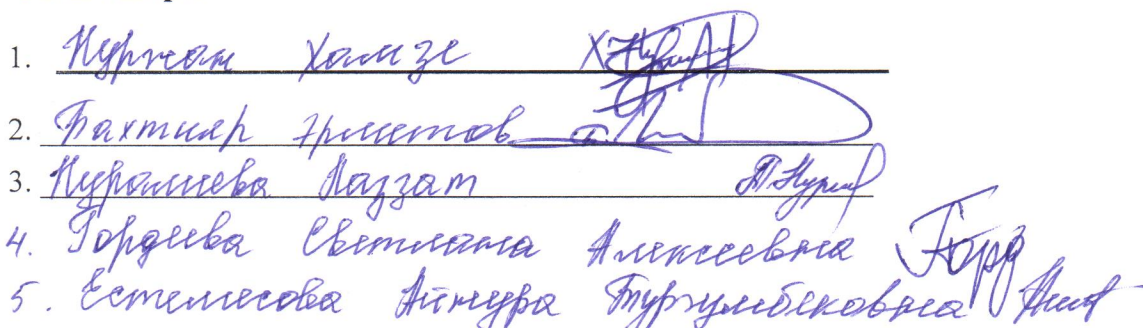 1. Нуржан Хамзе
2. Бахтияр Эрметов
3. Нуралиева Лаззат
4. Гордеева Светлана Алексеевна Горд
5. Естемесова Айнура